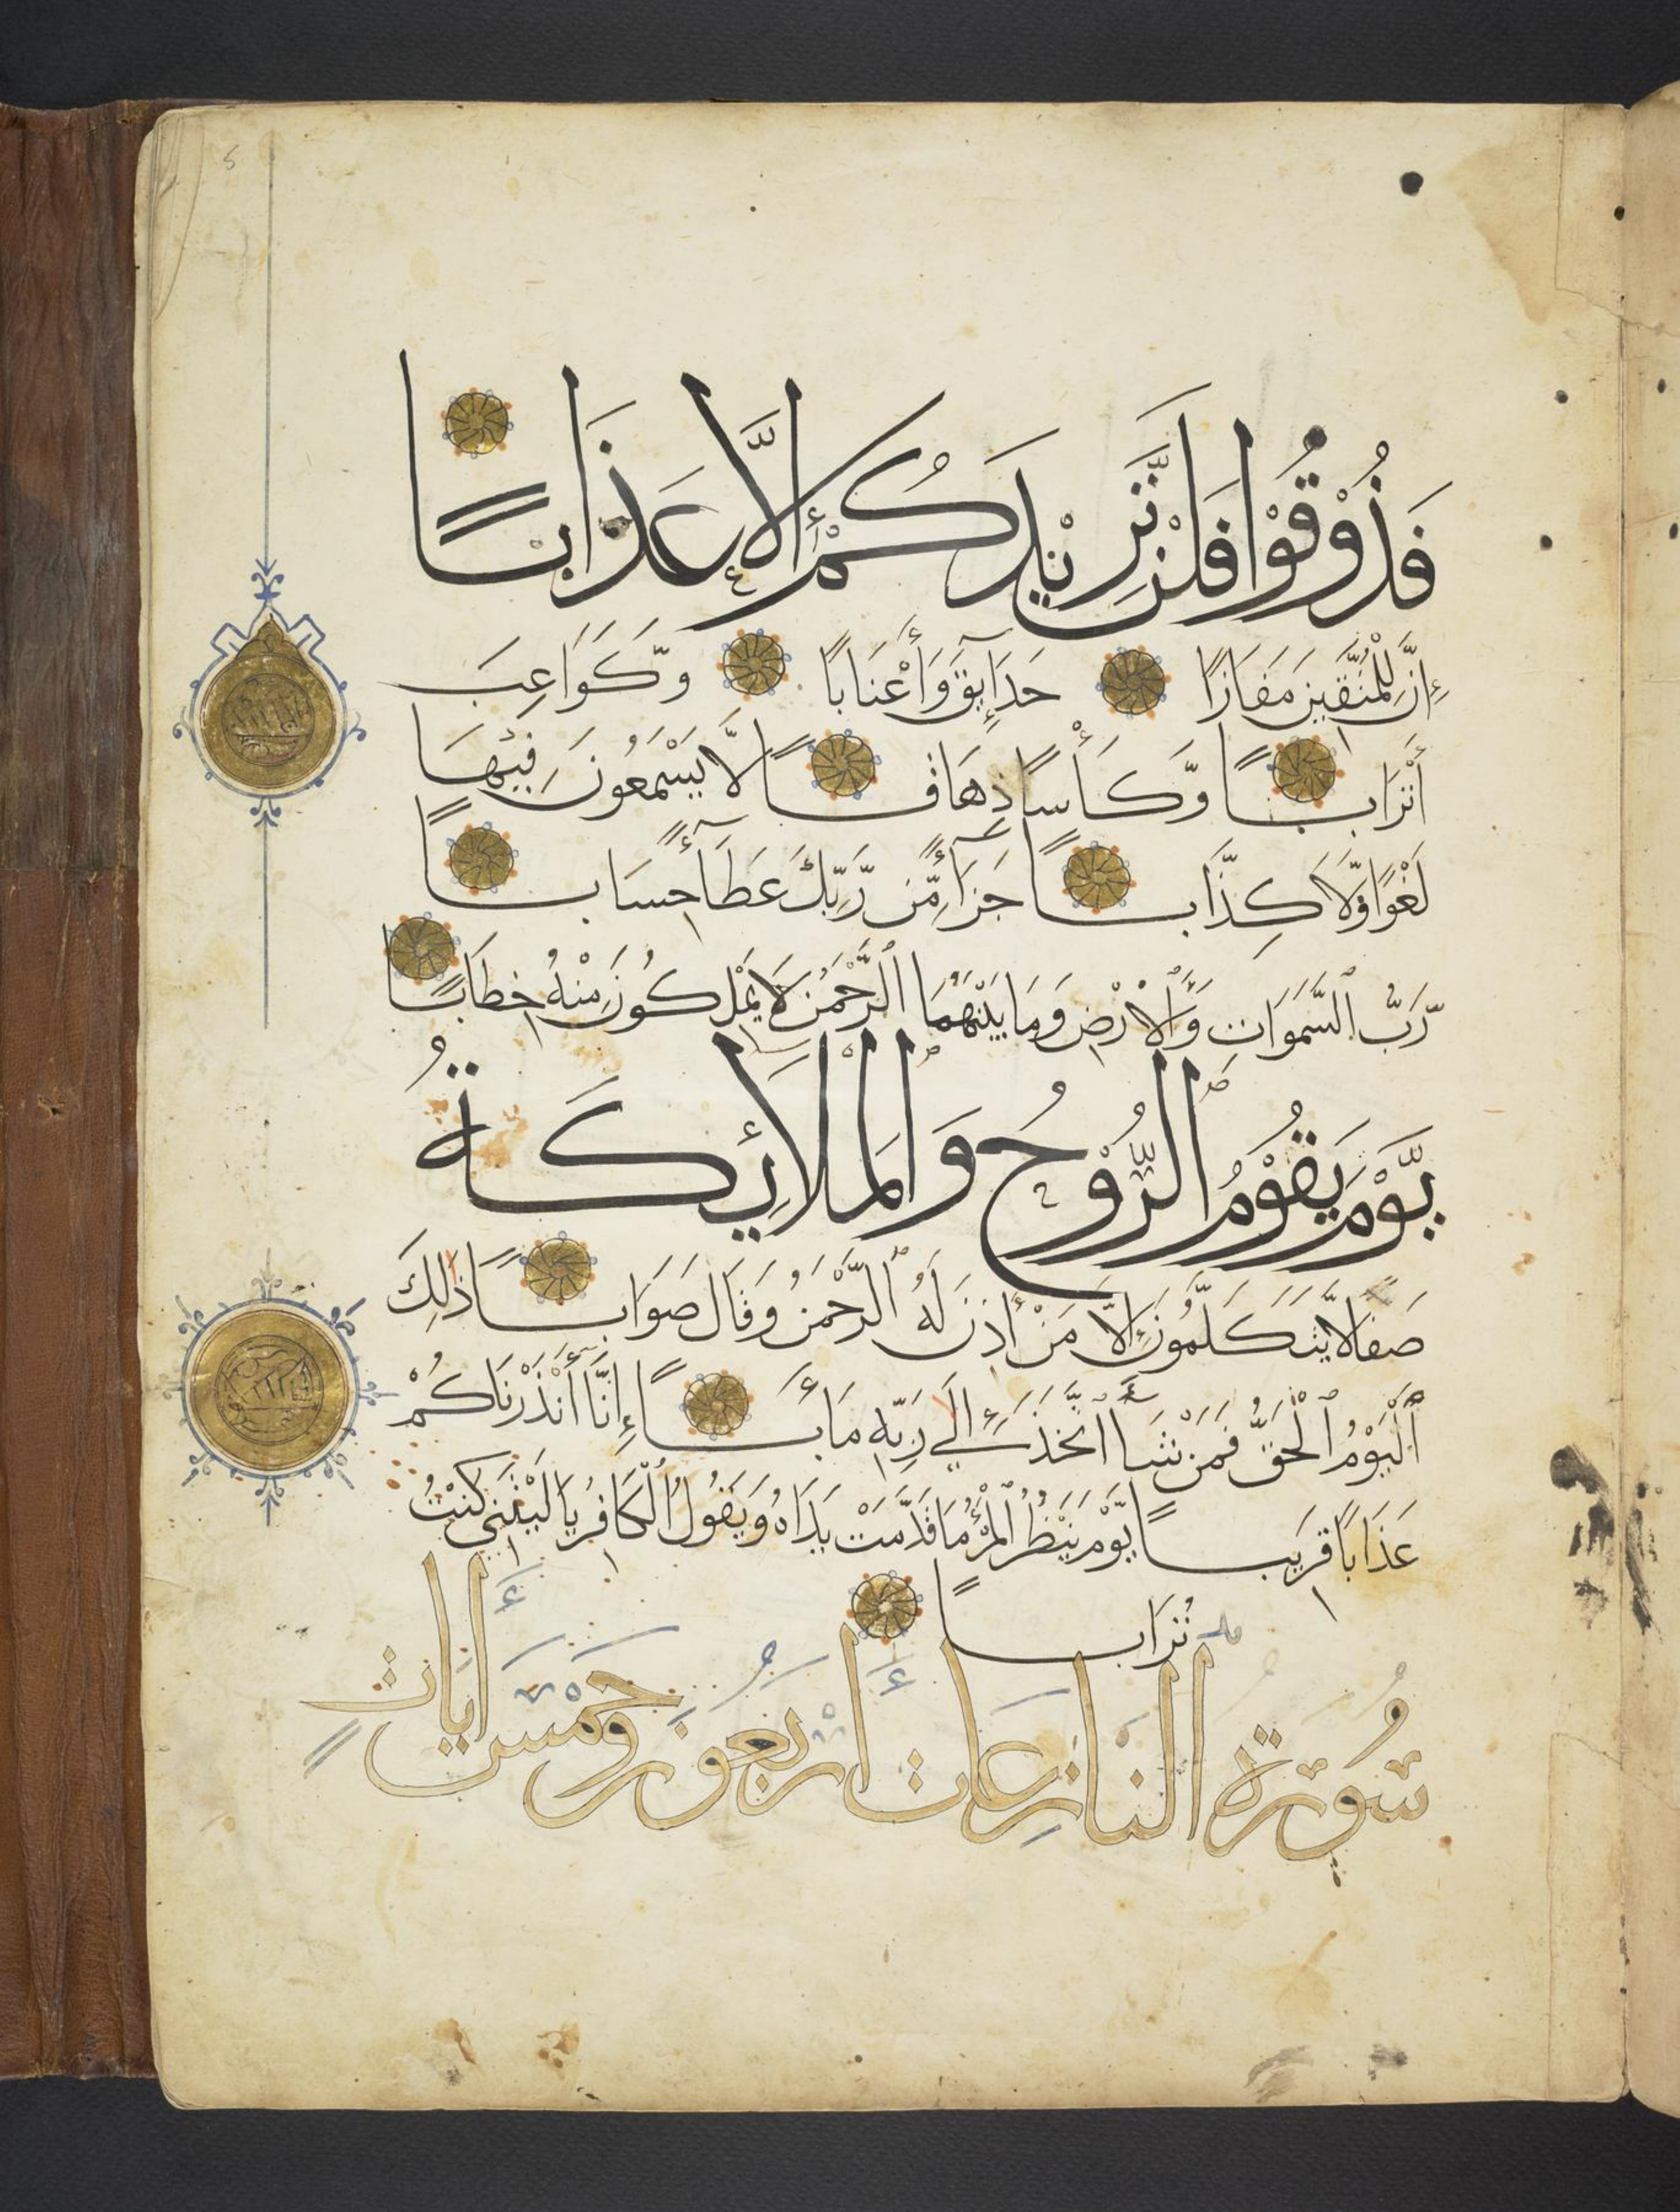 فَذُوْقُوْا فَلَنْ نَّزِيْدَكُمْ إِلَّا عَذَابًا
إِنَّ لِلْمُتَّقِينَ مَفَازًا حَدَآئِقَ وَأَعْنَابًا وَّكَوَاعِبَ
أَتْرَابًا وَّكَأْسًا دِهَاقًا لَّا يَسْمَعُونَ فِيْهَا
لَغْوًا وَّلَا كِذَّابًا جَزَآءً مِّن رَّبِّكَ عَطَآءً حِسَابًا
رَّبِّ ٱلسَّمَوَاتِ وَٱلْأَرْضِ وَمَا بَيْنَهُمَا ٱلرَّحْمَنِ لَا يَمْلِكُونَ مِنْهُ خِطَابًا
يَّوْمَ يَقُوْمُ الرُّوْحُ وَالْمَلَائِكَةُ
صَفًّا لَّا يَتَكَلَّمُونَ إِلَّا مَنْ أَذِنَ لَهُ ٱلرَّحْمَنُ وَقَالَ صَوَابًا ذَلِكَ
ٱلْيَوْمُ ٱلْحَقُّ فَمَنْ شَآءَ ٱتَّخَذَ إِلَى رَبِّهِ مَأَبًا إِنَّآ أَنْذَرْنَاكُمْ
عَذَابًا قَرِيبًا يَّوْمَ يَنْظُرُ ٱلْمَرْءُ مَا قَدَّمَتْ يَدَاهُ وَيَقُولُ ٱلْكَافِرُ يَا لَيْتَنِي كُنْتُ
تُرَابًا
سُوْرَةُ النَّازِعَاتِ أَرْبَعُونَ وَخَمْسُ أَيَاتٍ